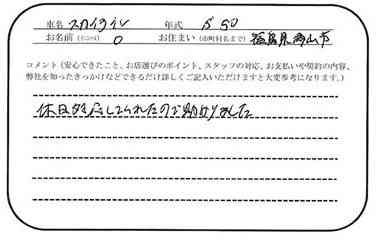 車名 スカイライン 年式 S50
お名前(イニシャル) O お住まい(市町村名まで) 福島県郡山市
コメント(安心できたこと、お店選びのポイント、スタッフの対応、お支払いや契約の内容、
弊社を知ったきっかけなどできるだけ詳しくご記入いただけますと大変参考になります。)
休日対応してくれたので助かりました